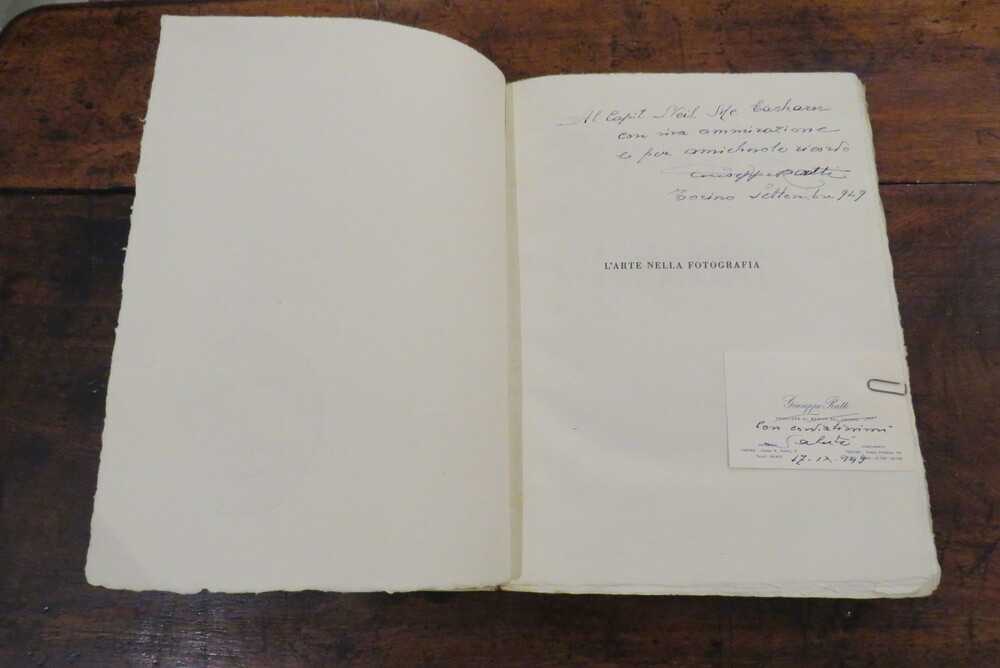 Al Capit Neil Mc Eacharn
con viva ammirazione
e per amichevole ricordo
Giuseppe Ratti
Torino Settembre 949
L'ARTE NELLA FOTOGRAFIA
Giuseppe Ratti
Con cordialissimi
saluti
17-IX-949